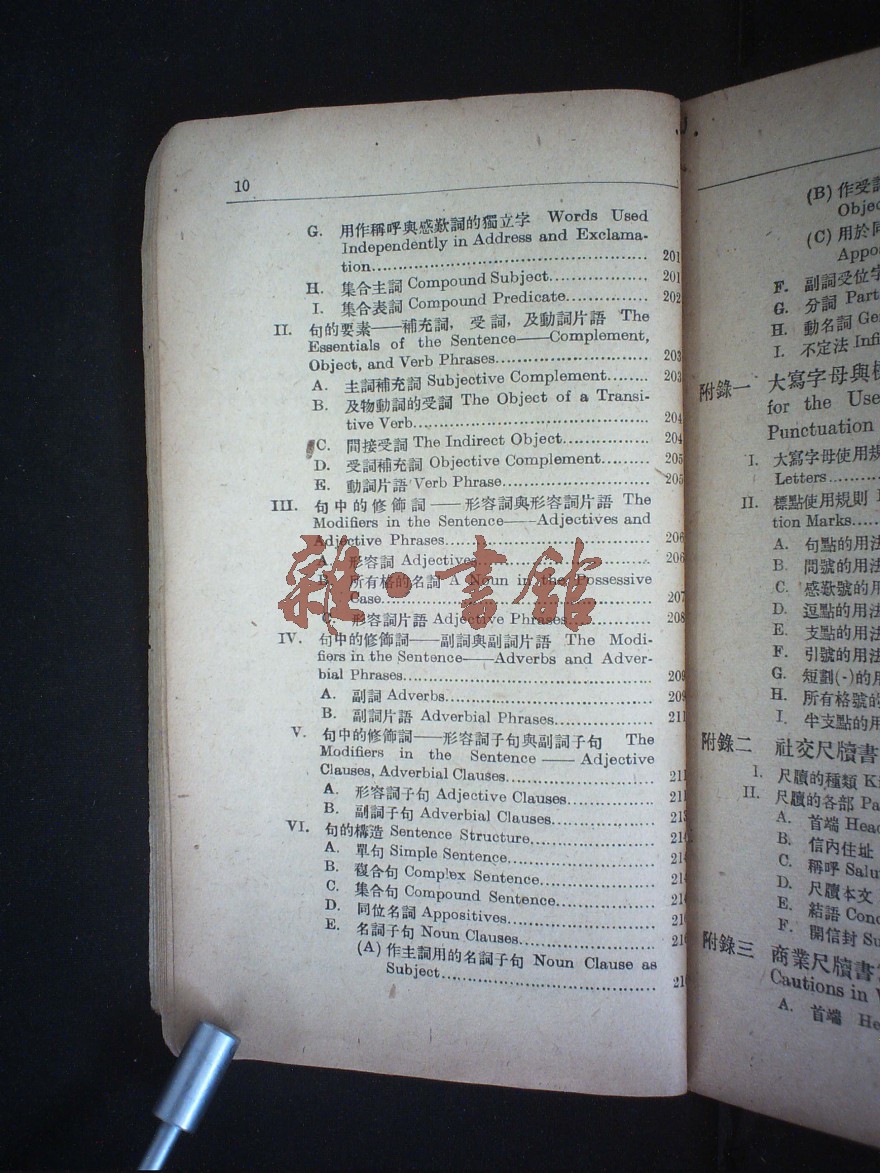 10
G. 用作稱呼與感歎詞的獨立字 Words Used
Independently in Address and Exclama-
tion........ 201
H. 集合主詞 Compound Subject........ 201
I. 集合表詞 Compound Predicate........ 202
II. 句的要素——補充詞, 受詞, 及動詞片語 The
Essentials of the Sentence——Complement,
Object, and Verb Phrases........ 203
A. 主詞補充詞 Subjective Complement........ 203
B. 及物動詞的受詞 The Object of a Transi-
tive Verb........ 204
C. 間接受詞 The Indirect Object........ 204
D. 受詞補充詞 Objective Complement........ 205
E. 動詞片語 Verb Phrase........ 205
III. 句中的修飾詞——形容詞與形容詞片語 The
Modifiers in the Sentence——Adjectives and
Adjective Phrases........ 206
A. 形容詞 Adjectives........ 206
B. 所有格的名詞 A Noun in the Possessive
Case........ 207
C. 形容詞片語 Adjective Phrases........ 208
雜·書館
IV. 句中的修飾詞——副詞與副詞片語 The Modi-
fiers in the Sentence——Adverbs and Adver-
bial Phrases........ 209
A. 副詞 Adverbs........ 209
B. 副詞片語 Adverbial Phrases........ 211
V. 句中的修飾詞——形容詞子句與副詞子句 The
Modifiers in the Sentence——Adjective
Clauses, Adverbial Clauses........ 211
A. 形容詞子句 Adjective Clauses........ 211
B. 副詞子句 Adverbial Clauses........ 213
VI. 句的構造 Sentence Structure........ 214
A. 單句 Simple Sentence........ 214
B. 複合句 Complex Sentence........
C. 集合句 Compound Sentence........
D. 同位名詞 Appositives........
E. 名詞子句 Noun Clauses........
(A) 作主詞用的名詞子句 Noun Clause as
Subject........
(B) 作受
Obje
(C) 用於
Appo
F. 副詞受位
G. 分詞 Part
H. 動名詞 Ge
I. 不定法 Infi
附錄一 大寫字母與
for the Use
Punctuation
I. 大寫字母使用
Letters........
II. 標點使用規則
tion Marks........
A. 句點的用法
B. 問號的用法
C. 感歎號的用
D. 逗點的用法
E. 支點的用法
F. 引號的用法
G. 短劃(-)的用
H. 所有格號的
I. 半支點的用
附錄二 社交尺牘書
I. 尺牘的種類 K
II. 尺牘的各部 Pa
A. 首端 Head
B. 信內住址
C. 稱呼 Salu
D. 尺牘本文
E. 結語 Conc
F. 開信封 Su
附錄三 商業尺牘書
Cautions in
A. 首端 He